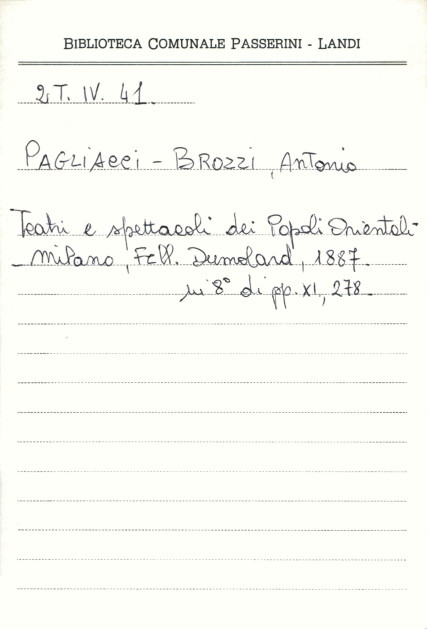 BIBLIOTECA COMUNALE PASSERINI - LANDI
2 T. IV. 41.
PAGLIACCI - BROZZI, Antonio
Teatri e spettacoli dei Popoli Orientali -
Milano, F.lli Dumolard, 1887.
in 8° di pp. XI, 278.